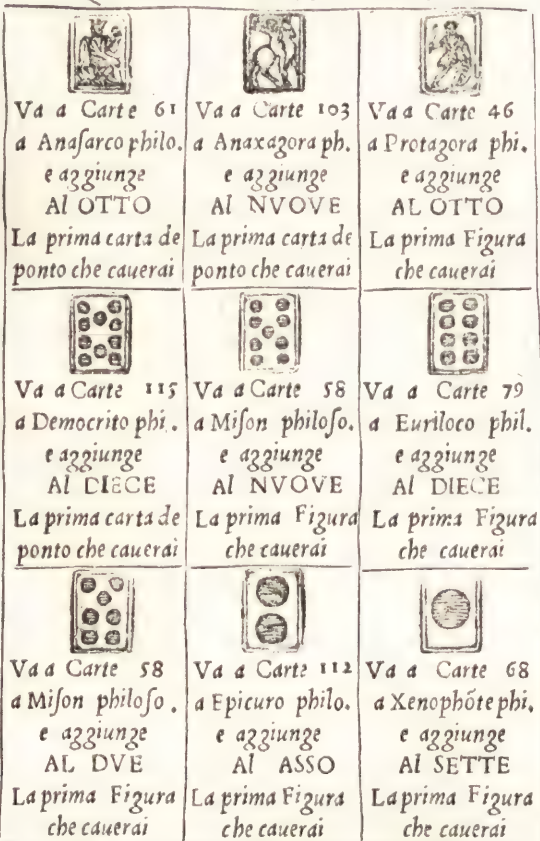 Va a Carte 61
a Anaſarco philo.
e aggiunge
Al OTTO
La prima carta de
ponto che cauerai
Va a Carte 103
a Anaxagora ph.
e aggiunge
Al NVOVE
La prima carta de
ponto che cauerai
Va a Carte 46
a Protagora phi.
e aggiunge
AL OTTO
La prima Figura
che cauerai
Va a Carte 115
a Democrito phi.
e aggiunge
Al DIECE
La prima carta de
ponto che cauerai
Va a Carte 58
a Miſon philoſo.
e aggiunge
Al NVOVE
La prima Figura
che cauerai
Va a Carte 79
a Euriloco phil.
e aggiunge
Al DIECE
La prima Figura
che cauerai
Va a Carte 58
a Miſon philoſo.
e aggiunge
AL DVE
La prima Figura
che cauerai
Va a Carte 112
a Epicuro philo.
e aggiunge
Al ASSO
La prima Figura
che cauerai
Va a Carte 68
a Xenophõte phi.
e aggiunge
Al SETTE
La prima Figura
che cauerai